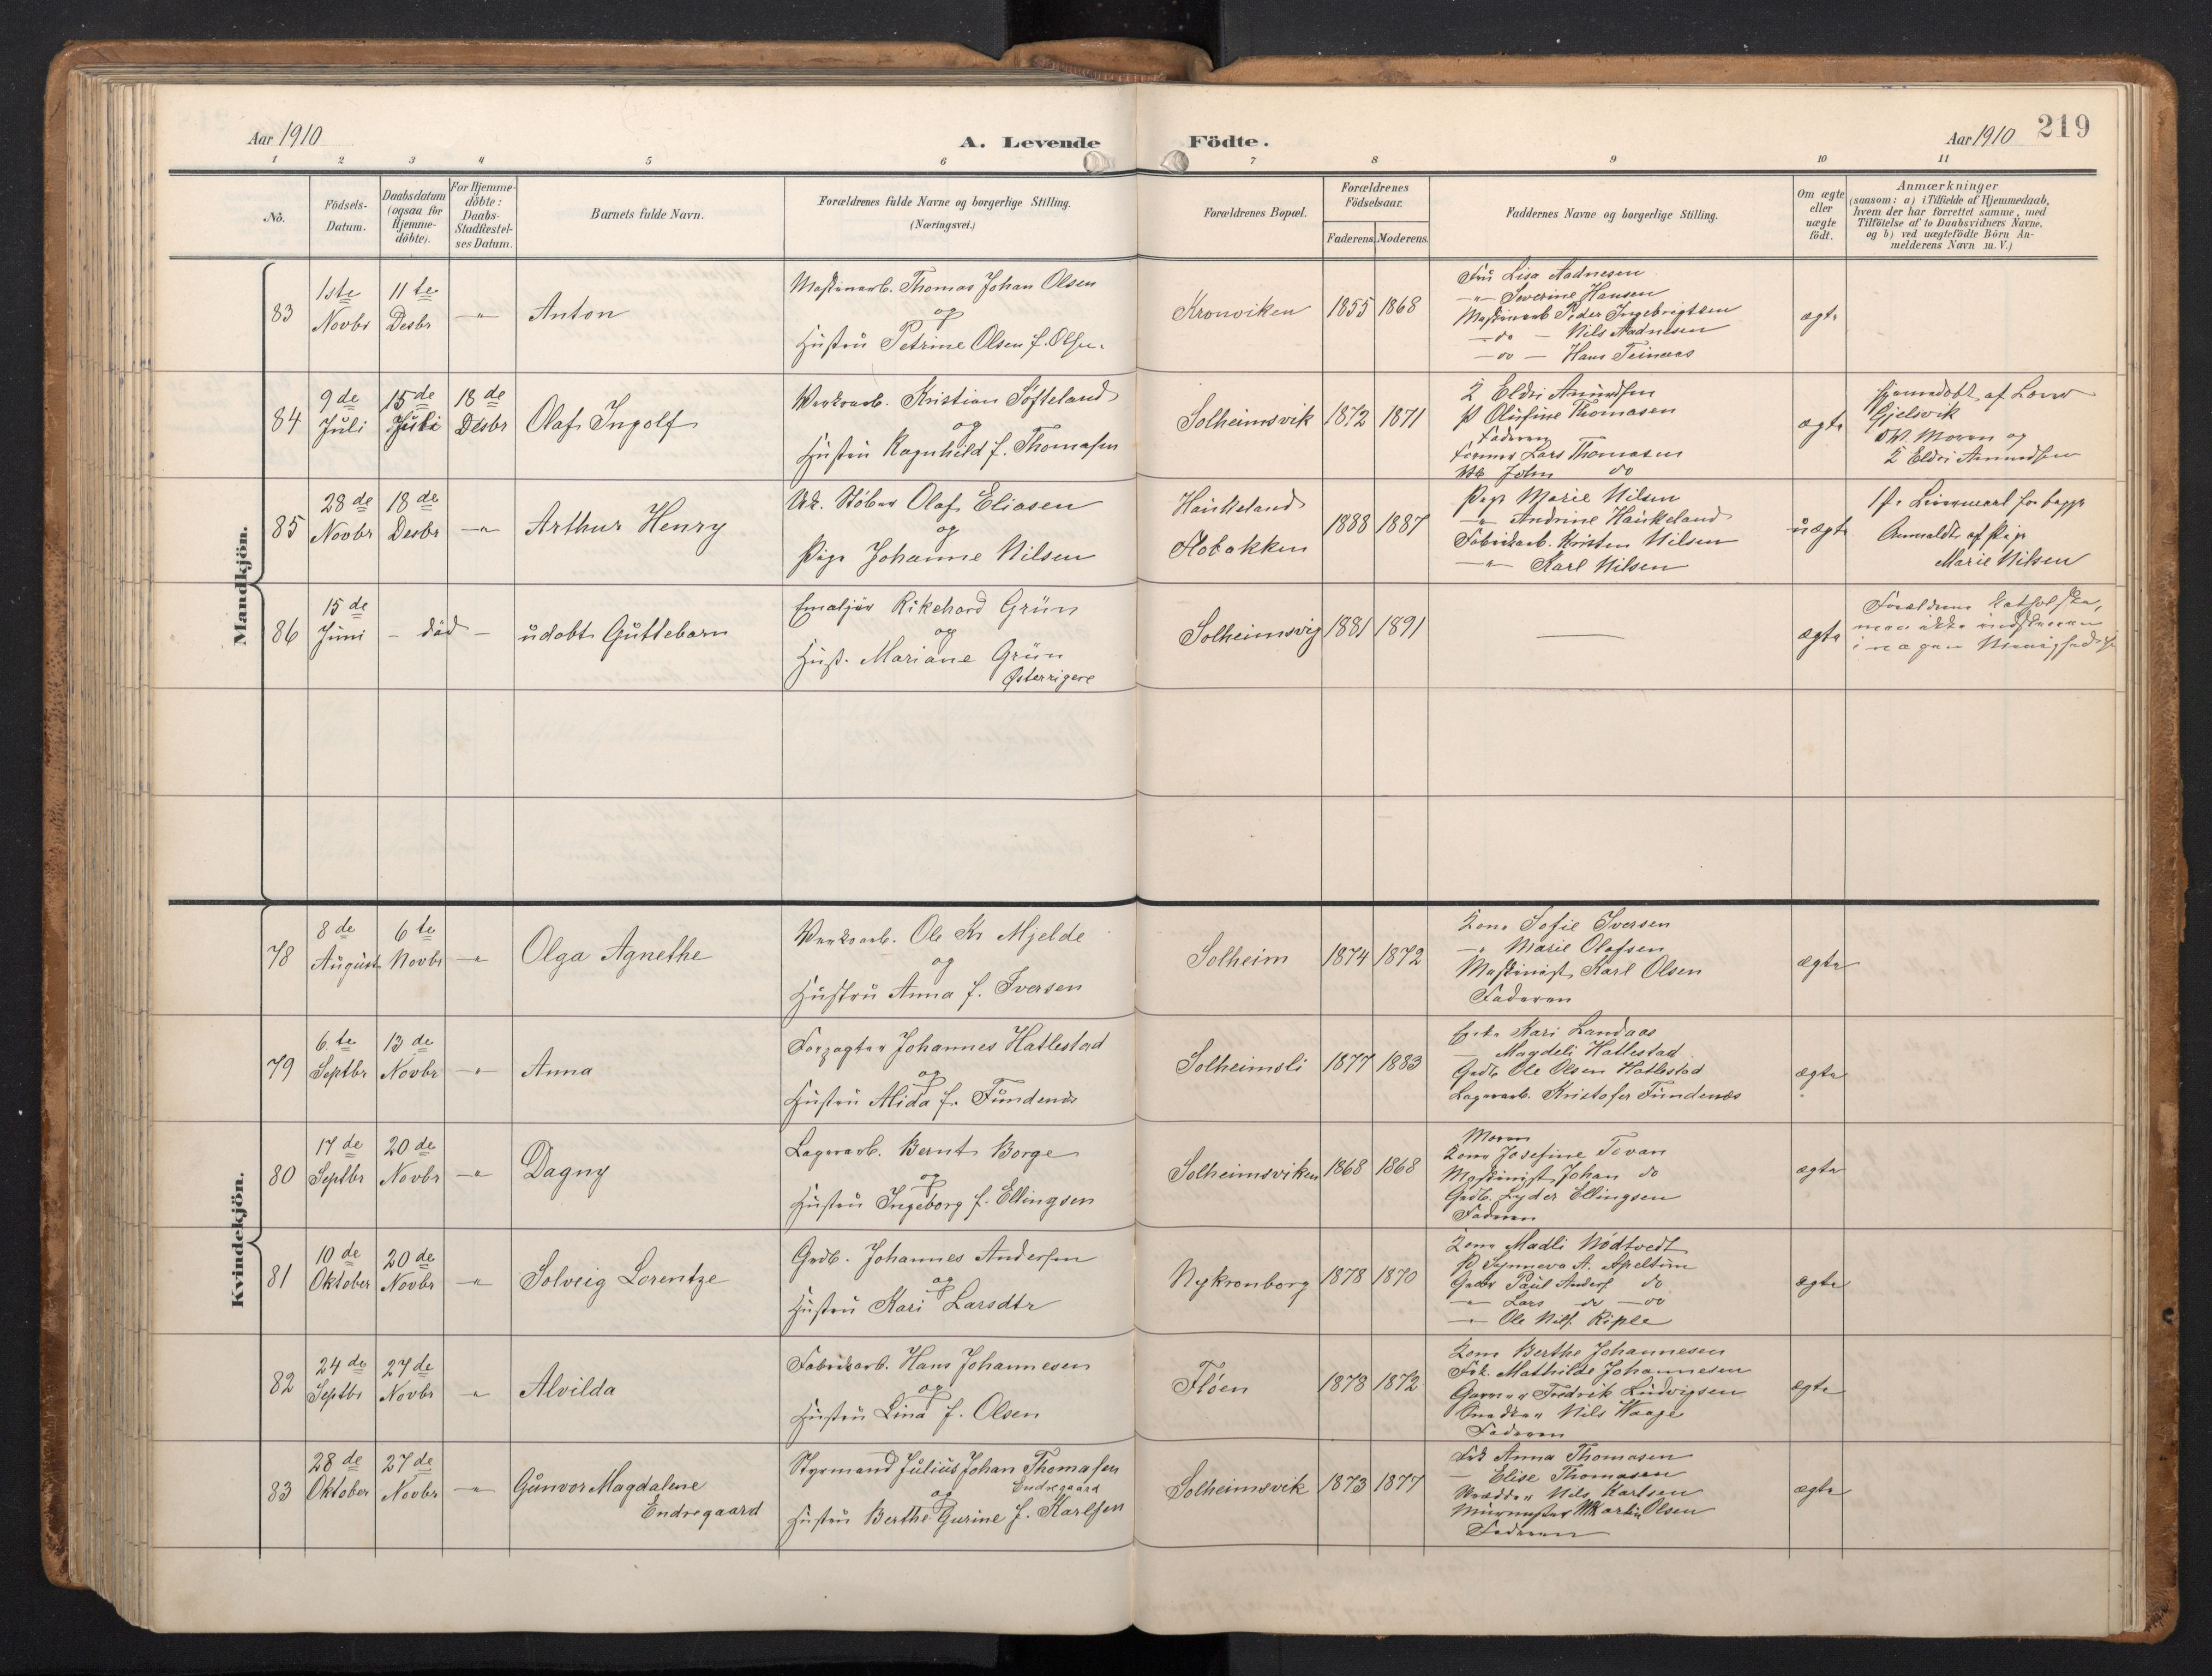 Aar 1910
A. Levende Födte.
Aar 1910
219
1 2 3 4 5 6 7 8 9 10 11
No.
Födsels-
Datum.
Daabsdatum
(ogsaa for
Hjemme-
döbte).
For Hjemme-
döbte:
Daabs-
Stadfæstel-
ses Datum.
Barnets fulde Navn.
Forældrenes fulde Navne og borgerlige Stilling.
(Næringsvei.)
Forældrenes Bopæl.
Forældrenes
Födselsaar.
Faderens. Moderens.
Faddernes Navne og borgerlige Stilling.
Om ægte
eller
uægte
födt.
Anmærkninger
(saasom: a) i Tilfælde af Hjemmedaab,
hvem der har forrettet samme, med
Tilföielse af to Daabsvidners Navne,
og b) ved uægtefödte Börn An-
melderens Navn m. V.)
Mandkjön.
83
1ste
Novbr
11te
Desbr
—"—
Anton
Maskinarb. Thomas Johan Olsen
og
Hustru Petrine Olsen f. Olsen
Kronviken
1855
1868
Fru Lisa Aadnesen
—"— Severine Hansen
Maskinarb Peder Ingebrigtsen
— do — Nils Aadnesen
— do — Hans Teinaas
ægte
84
9de
Juli
15de
Juli
18de
Desbr
Olaf Ingolf
Værksarb. Kristian Søfteland
og
Hustru Ragnhild f. Thomasen
Solheimsvik
1872
1871
K Eldri Amundsen
P Olufine Thomasen
Faderen
Former Lars Thomasen
John do
ægte
Hjemmedøbt af
Gjelsvik
Moren og
K Eldri Amundsen
85
28de
Novbr
18de
Desbr
—"
Arthur Henry
Uk. Støber Olaf Eliasen
og
Pige Johanne Nilsen
Haukeland
Flobakken
1888
1887
Pige Marie Nilsen
—"— Andrine Haukeland
Fabrikarb. Kristen Nilsen
—"— Karl Nilsen
uægte
1ste Leiermaal for begge
Anmeldt af Pige
Marie Nilsen
86
15de
Juni
— død —
udøbt Guttebarn
Emaljør Rikehard Grün
og
Hust. Mariane Grün
Østerrigere
Solheimsvig
1881
1891
———
ægte
Forældrene katholske,
men ikke indskrevne
i nogen Menighed
Kvindekjön.
78
8de
August
6te
Novbr
—"
Olga Agnethe
Værksarb. Ole Kr Mjelde
og
Hustru Anna f. Iversen
Solheim
1874
1872
Kone Sofie Iversen
—" Marie Olafsen
Maskinist Karl Olsen
Faderen
ægte
79
6te
Septbr
13de
Novbr
—"—
Anna
Forpagter Johannes Hatlestad
og
Hustru Alida f. Fundenes
Solheimsli
1877
1883
Kari Landaas
— Magdeli Hatlestad
Grdb. Ole Olsen Hatlestad
Lagerarb. Kristofer Fundenæs
ægte
80
17de
Septbr
20de
Novbr
—"
Dagny
Lagerarb. Bernt Borge
og
Hustru Ingeborg f. Ellingsen
Solheimsviken
1868
1868
Moren
Kone Josefine Tevan
Maskinist Johan do
Grdb. Lyder Ellingsen
Faderen
ægte
81
10de
Oktober
20de
Novbr
—"
Solveig Lorentze
Grdb. Johannes Andersen
og
Hustru Kari Larsdtr
Nykronborg
1878
1870
Kone Madli Nødtvedt
P Synneva A. Apeltun
Grdbr Paul Anders. do
—"— Lars do — do
—"— Ole Nils. Riple
ægte
82
24de
Septbr
27de
Novbr
"
Alvilda
Fabrikarb. Hans Johannesen
og
Hustru Lina f. Olsen
Fløen
1878
1872
Kone Berthe Johannesen
Frk. Mathilde Johannesen
Garver Fredrik Ludvigsen
Snedker Nils Waage
Faderen
ægte
83
28de
Oktober
27de
Novbr
—"
Gunvor Magdalene
Endregaard
Styrmand Julius Johan Thomasen
Endregaard
og
Hustru Berthe Gurine f. Karlsen
Solheimsvik
1873
1877
Frk Anna Thomasen
— Elise Thomasen
Skrædder Nils Karlsen
Murmester Martin Olsen
Faderen
ægte